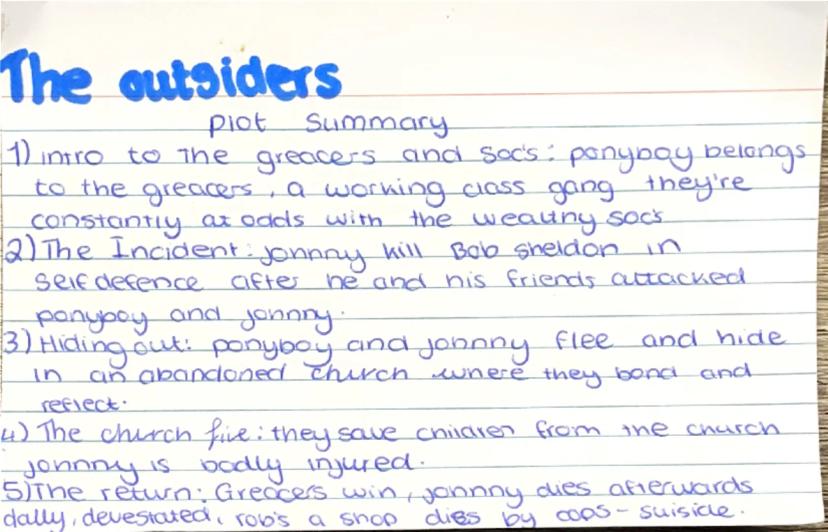 The outsiders
plot summary
1) intro to the greacers and soc's: ponyboy belongs
to the greacers, a working class gang they're
constantly at odds with the wealthy soc's
2) The Incident: johnny kill Bob sheldon in
self defence after he and his friends attacked
ponyboy and johnny.
3) Hiding out: ponyboy and johnny flee and hide
in an abandoned church where they bond and
reflect.
4) The church fire: they save children from the church
johnny is badly injured.
5) The return: Greacers win, johnny dies afterwards
dally, devestated, rob's a shop dies by cops-suiside.